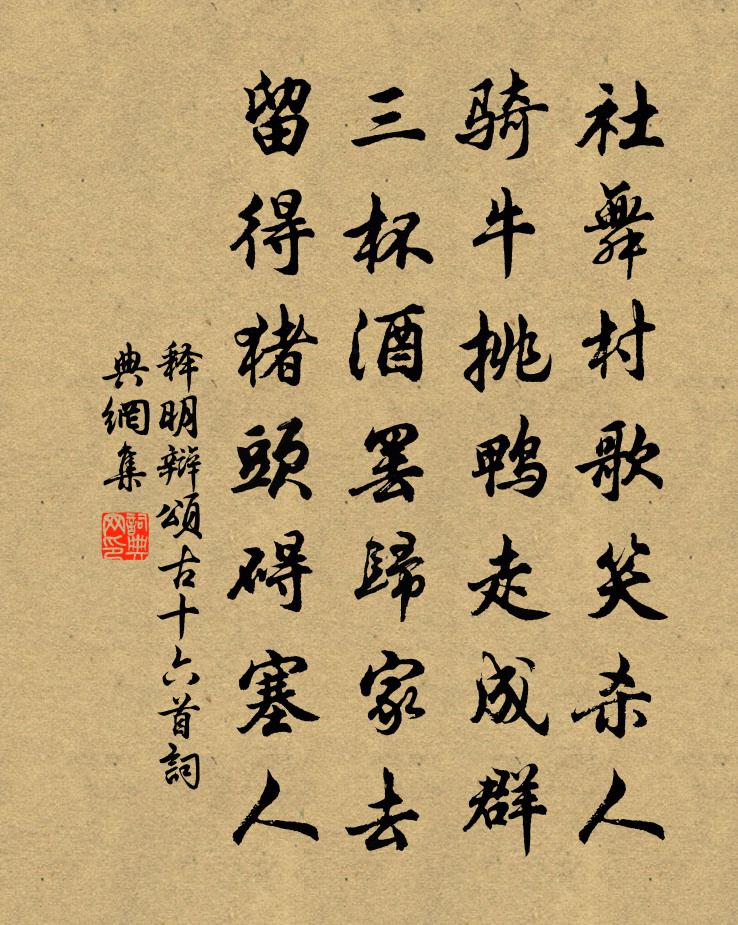 社舞村歌笑杀人
骑牛挑鸭走成群
三杯酒罢归家去
留得猪頭碍塞人
释明辩頌古十六首詞
典網集
詞典
网印